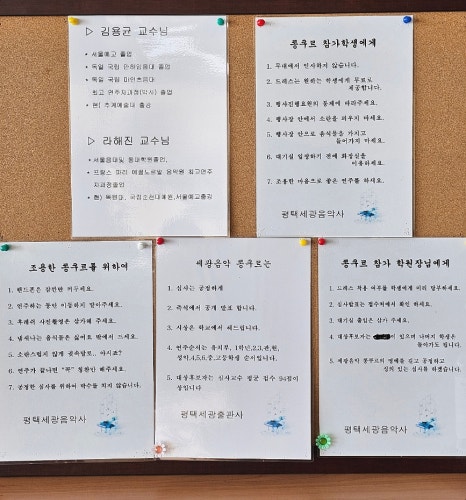 ▷ 김용균 교수님
• 서울예고 졸업
• 독일 국립 만하임음대 졸업
• 독일 국립 마인츠음대
최고 연주자과정(박사) 졸업
• 현) 추계예술대 출강
▷ 라해진 교수님
• 서울음대및 동대학원졸업,
• 프랑스 파리 에꼴노르말 음악원 최고연주
자과정졸업
• 현) 목원대, 국립 예원,서울예고출강
콩쿠르 참가학생에게
1. 무대에서 인사하지 않습니다.
2. 드레스는 원하는 학생에게 무료로
제공합니다.
3. 행사진행요원의 통제에 따라주세요.
4. 행사장 안에서 소란을 피우지 마세요.
5. 행사장 안으로 음식물을 가지고
들어가지 마세요.
6. 대기실 입장하기 전에 화장실을
이용하세요.
7. 조용한 마음으로 좋은 연주를 하세요.
평택세광음악사
조용한 콩쿠르를 위하여
1. 핸드폰은 잠깐만 꺼두세요.
2. 연주하는 동안 이동하지 말아주세요.
3. 후레쉬 사진촬영은 삼가해 주세요.
4. 냄새나는 음식들은 싫어요 밖에서 드세요.
5. 소란스럽지 않게 귓속말로.. 아시죠?
6. 연주가 끝나면 "꼭" 칭찬만 해주세요.
7. 공정한 심사를 위하여 박수를 치지 않습니다.
평택세광음악사
세광음악 콩쿠르는
1. 심사는 공정하게
2. 즉석에서 공개 발표 합니다.
3. 시상은 학교에서 해드립니다.
4. 연주순서는 유치부, 1학년,2,3,관현,
성악,4,5,6,중,고등학생 순서입니다.
5. 대상후보자는 심사교수 평균 점수 94점이
상입니다
평택세광출판사
콩쿠르 참가 학원장님에게
1. 드레스 착용 여부를 학생에게 미리 알려주세요.
2. 심사발표는 접수처에서 확인 하세요.
3. 대기실 출입은 삼가 주세요.
4. 대상후보자는 있으며 나머지 학생은
돌아가도 됩니다.
5. 세광음악 콩쿠르의 명예를 걸고 공정하고
성의 있는 심사를 하겠습니다.
평택세광음악사